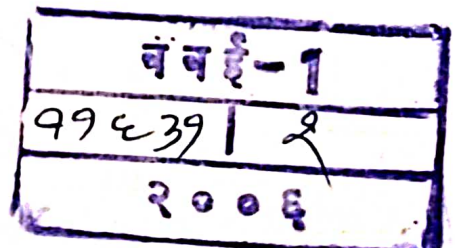 बंबई-1
११६३१ | २
२००६